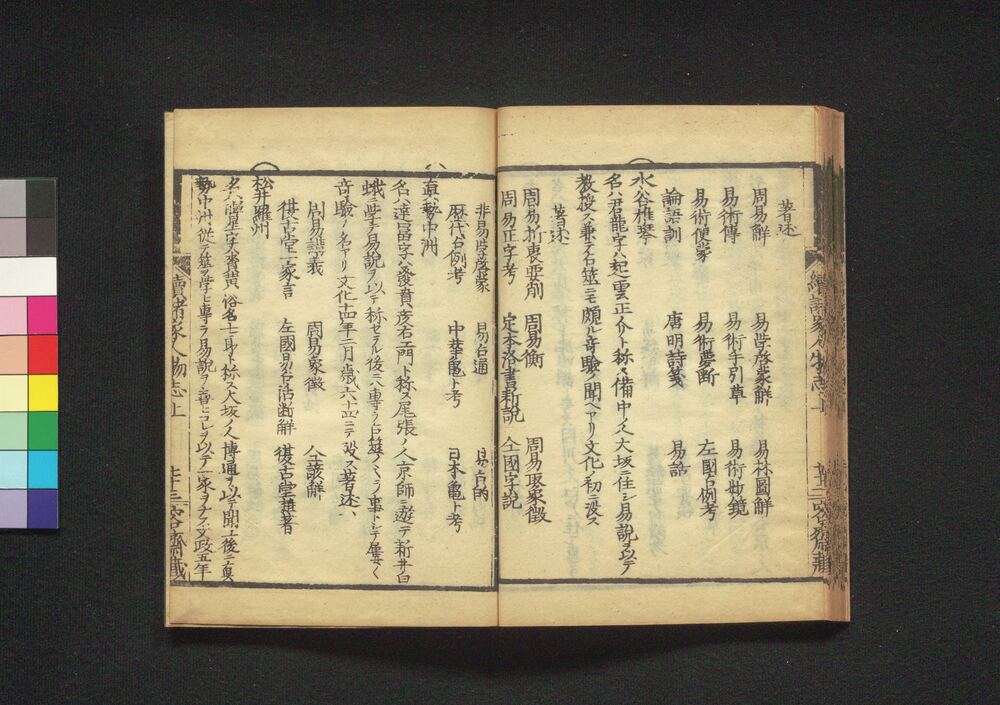 著述
周易解　易学啓蒙解　易林圖解
易術傳　易術手引草　易術妙鏡
易術便蒙　易術夢断　左國占例考
論語訓　唐明詩箋　易話
水谷椎琴
名ハ君龍字ハ起雲正介ト称ス備中ノ人大坂ニ住シ易説ヲ以テ
教授ス兼テ占筮ニモ頗ル奇驗ノ聞ヘアリ文化ノ初ニ没ス
著述
周易折衷要削　周易衡　周易聚象徴
周易正字考　定本洛書新説　仝國字説
非易学啓蒙　易占通　易占的
歴代占例考　中華亀卜考　日本亀卜考
真勢中洲
名ハ達冨字ハ發貴彦右エ門ト称ス尾張ノ人京師ニ遊テ新井白
蛾ニ学テ易説ヲ以テ称セラル後ニハ専ラ占筮ノミヲ事トシテ屢々
奇驗ノ名アリ文化十四年二月歳六十四ニテ没ス著述、
周易講義　周易象徴　仝諺解
復古堂一家言　左國易占活断解　復古堂雑著
松井羅州
名ハ　星字ハ賚黄俗名七郎ト称ス大坂ノ人博通ヲ以テ聞エ後ニ真
勢中洲ニ従テ筮ヲ学ヒ専ラ易説ヲ善ヒコレヲ以テ一家ヲナス文政五年
續諸家人物志上
七十三
咬齋藏